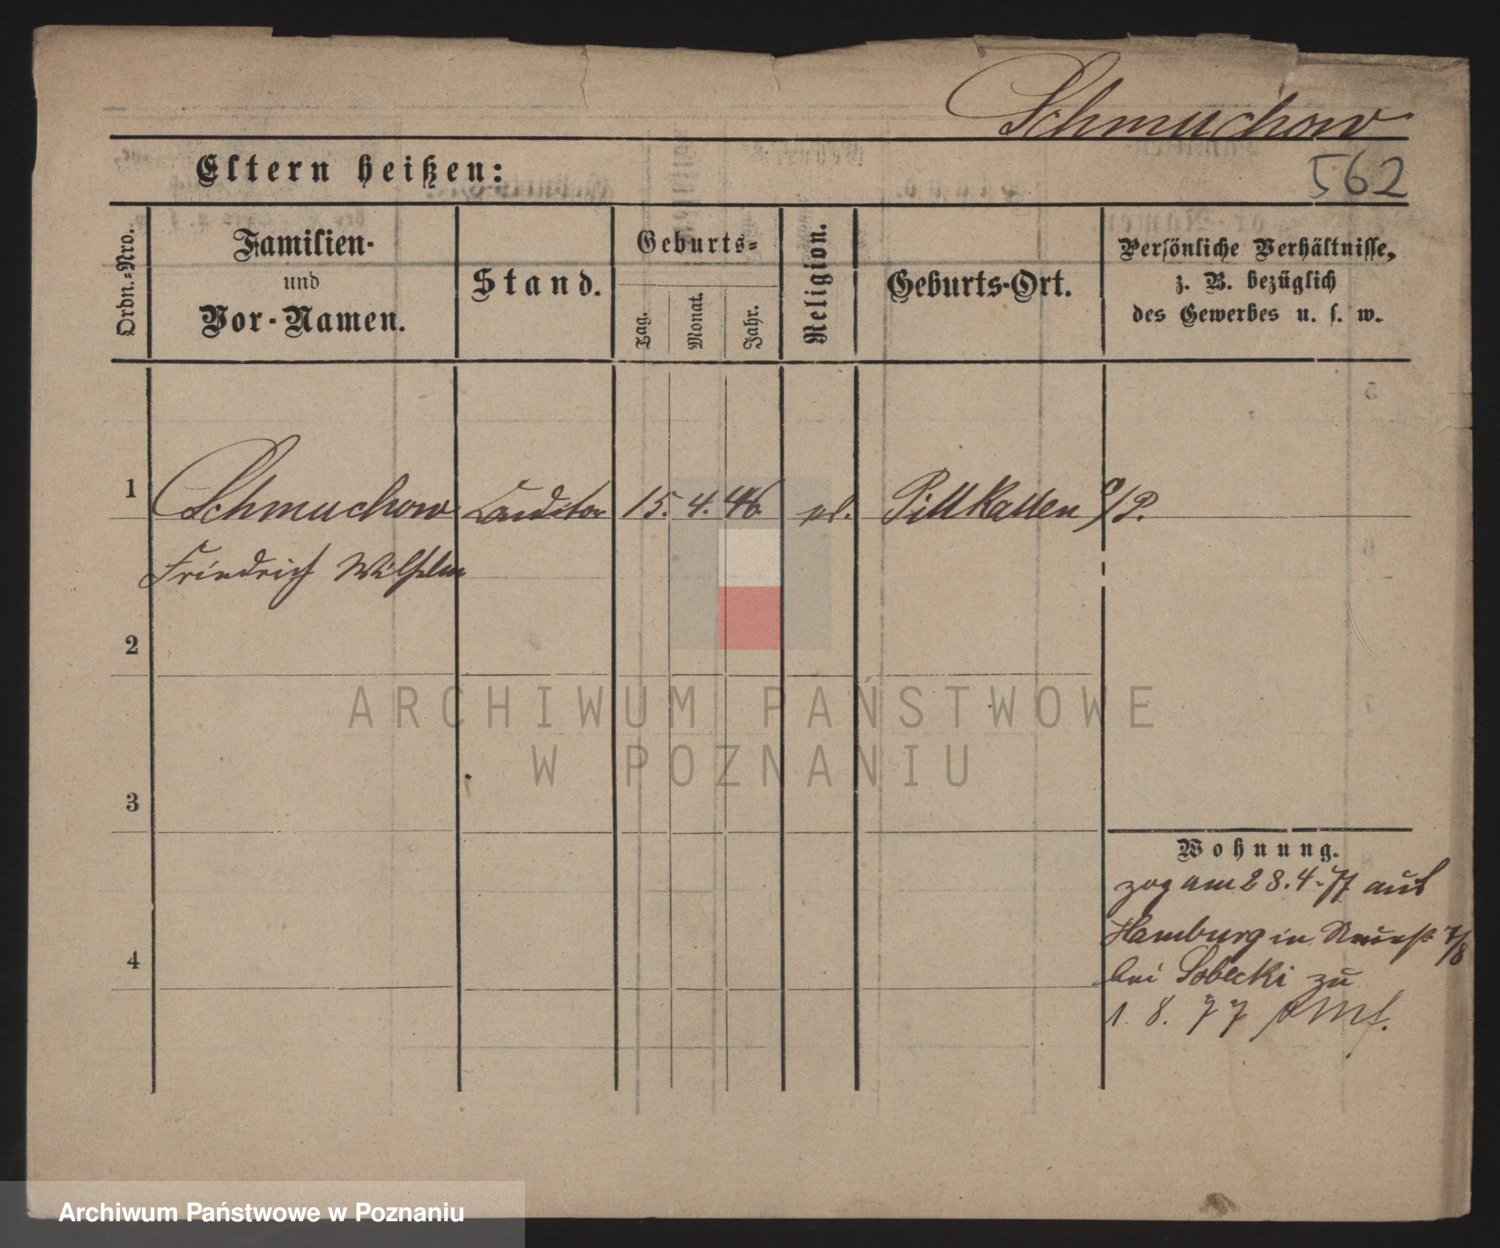 Schmuchow
Eltern heißen:
562
Ordn.-Nro.
Familien-
und
Vor-Namen.
Stand.
Geburts-
Tag.
Monat.
Jahr.
Religion.
Geburts-Ort.
Persönliche Verhältnisse,
z. B. bezüglich
des Gewerbes u. s. w.
1
Schmuchow Conditor 15. 4. 46 ev. Pillkallen O/P.
Friedrich Wilhelm
2
3
4
Wohnung.
zog am 28.4.77 aus
Hamburg in 7/8
bei Sobecki zu
1. 8. 77
ARCHIWUM PAŃSTWOWE
W POZNANIU
Archiwum Państwowe w Poznaniu